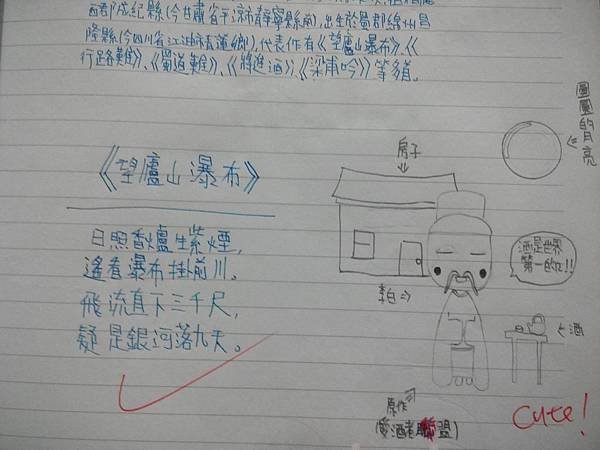 西郡成紀縣(今甘肅省平涼市靜寧縣南),出生於蜀郡綿州昌
隆縣(今四川省江油市青蓮鄉),代表作有《望廬山瀑布》、《
行路難》、《蜀道難》、《將進酒》、《梁甫吟》等多首。
《望廬山瀑布》
日照香爐生紫煙,
遙看瀑布掛前川。
飛流直下三千尺,
疑是銀河落九天。
圓圓的月亮
房子
酒是世界
第一的!!
李白
酒
原作
(愛酒老 聯盟)
cute!